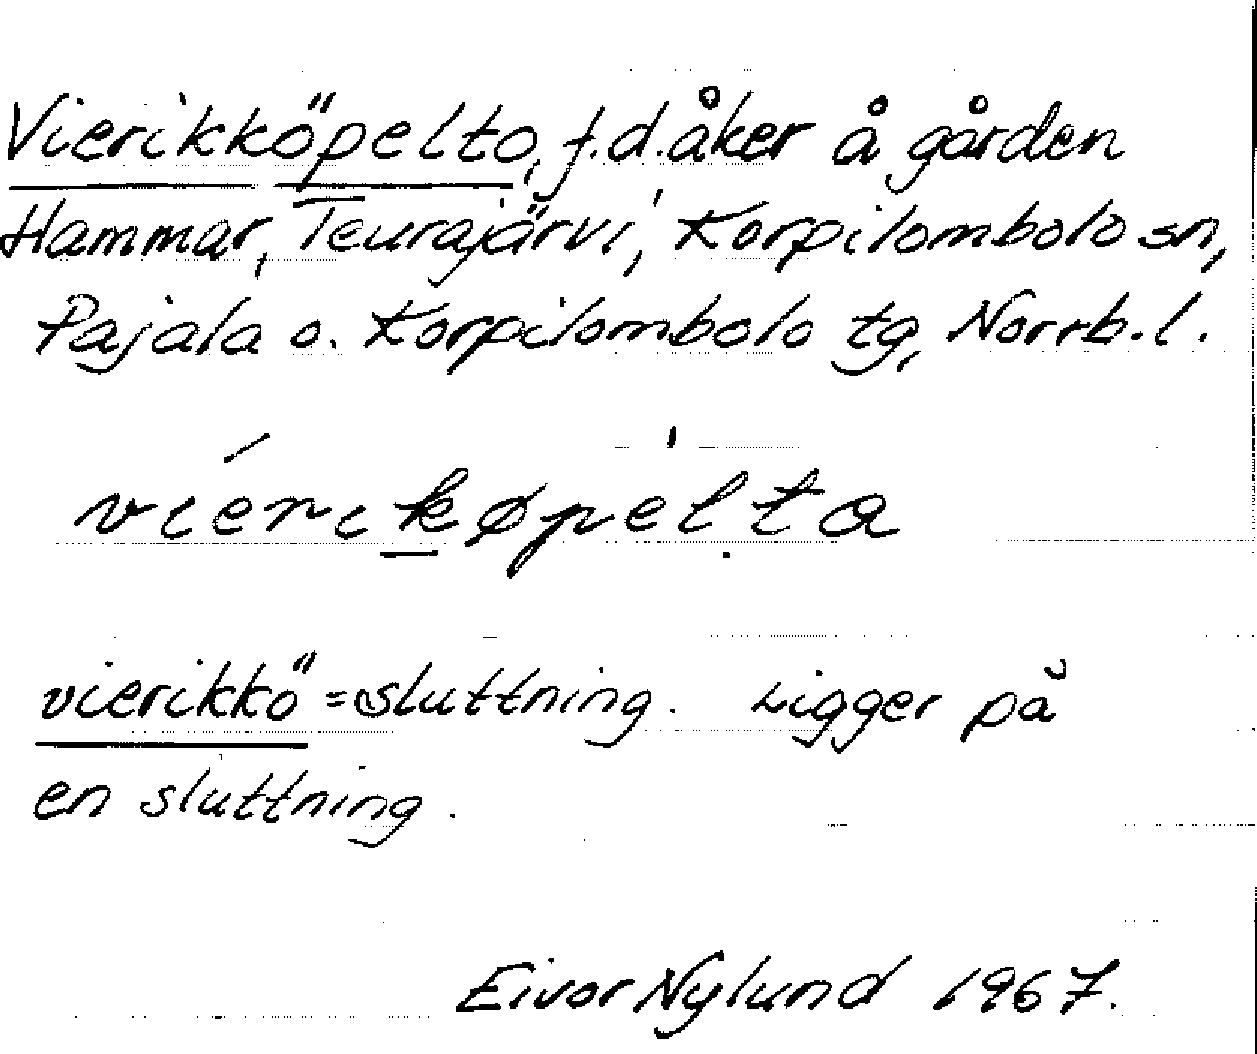 Vierikköpelto, f.d. åker å gården
Hammar, Teurajärvi, Korpilombolo sn,
Pajala o. Korpilombolo tg, Norrb. l.
vierikøpelta
vierikkö = sluttning. Ligger på
en sluttning.
Eivor Nylund 1967.